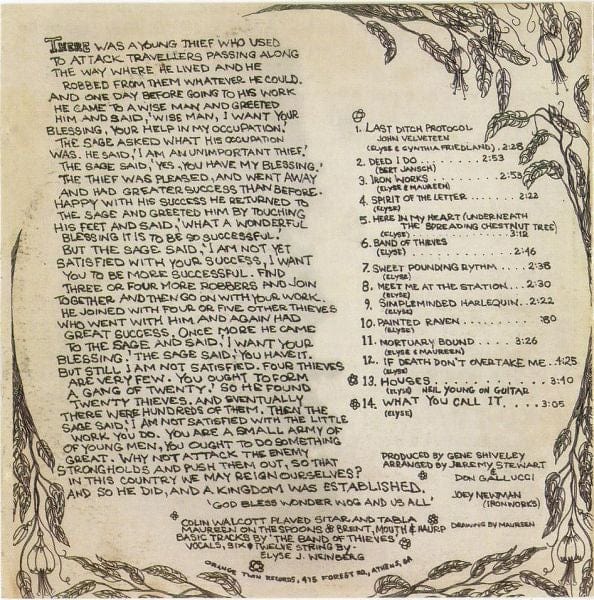 THERE WAS A YOUNG THIEF WHO USED
TO ATTACK TRAVELLERS PASSING ALONG
THE WAY WHERE HE LIVED AND HE
ROBBED FROM THEM WHATEVER HE COULD.
AND ONE DAY BEFORE GOING TO HIS WORK
HE CAME TO A WISE MAN AND GREETED
HIM AND SAID, 'WISE MAN, I WANT YOUR
BLESSING, YOUR HELP IN MY OCCUPATION.'
THE SAGE ASKED WHAT HIS OCCUPATION
WAS. HE SAID, 'I AM AN UNIMPORTANT THIEF.'
THE SAGE SAID, 'YES, YOU HAVE MY BLESSING.'
THE THIEF WAS PLEASED, AND WENT AWAY
AND HAD GREATER SUCCESS THAN BEFORE.
HAPPY WITH HIS SUCCESS HE RETURNED TO
THE SAGE AND GREETED HIM BY TOUCHING
HIS FEET AND SAID, 'WHAT A WONDERFUL
BLESSING IT IS TO BE SO SUCCESSFUL.'
BUT THE SAGE SAID, 'I AM NOT YET
SATISFIED WITH YOUR SUCCESS, I WANT
YOU TO BE MORE SUCCESSFUL. FIND
THREE OR FOUR MORE ROBBERS AND JOIN
TOGETHER AND THEN GO ON WITH YOUR WORK.
HE JOINED WITH FOUR OR FIVE OTHER THIEVES
WHO WENT WITH HIM, AND AGAIN HAD
GREAT SUCCESS. ONCE MORE HE CAME
TO THE SAGE AND SAID, 'I WANT YOUR
BLESSING.' THE SAGE SAID, 'YOU HAVE IT.
BUT STILL I AM NOT SATISFIED. FOUR THIEVES
ARE VERY FEW. YOU OUGHT TO FORM
A GANG OF TWENTY.' SO HE FOUND
TWENTY THIEVES. AND EVENTUALLY
THERE WERE HUNDREDS OF THEM. THEN THE
SAGE SAID, 'I AM NOT SATISFIED WITH THE LITTLE
WORK YOU DO. YOU ARE A SMALL ARMY OF
OF YOUNG MEN, YOU OUGHT TO DO SOMETHING
GREAT. WHY NOT ATTACK THE ENEMY
STRONGHOLDS AND PUSH THEM OUT, SO THAT
IN THIS COUNTRY WE MAY REIGN OURSELVES?
AND SO HE DID, AND A KINGDOM WAS ESTABLISHED.
'GOD BLESS WONDER WOG AND US ALL'
COLIN WALCOTT PLAYED SITAR AND TABLA
MAUREEN ON THE SPOONS & BRENT, MOUTH & HAURP
BASIC TRACKS BY 'THE BAND OF THIEVES'
VOCALS, SIX & TWELVE STRING BY-
ELYSE J. WEINBERG
ORANGE TWIN RECORDS, 415 FOREST RD., ATHENS, GA
1. LAST DITCH PROTOCOL
JOHN VELVETEEN
(ELYSE & CYNTHIA FRIEDLAND) . 2:28
2. DEED I DO . . . . 2:53
(BERT JANSCH)
3. IRON WORKS . . . . . . 2:53
(ELYSE & MAUREEN)
4. SPIRIT OF THE LETTER . . . 2:22
(ELYSE)
5. HERE IN MY HEART (UNDERNEATH
THE SPREADING CHESTNUT TREE)
(ELYSE) . . . . . . 3:12
6. BAND OF THIEVES
(ELYSE) . . . . . . 2:46
7. SWEET POUNDING RYTHM . . . 2:38
(ELYSE)
8. MEET ME AT THE STATION . . . 2:30
(ELYSE)
9. SIMPLEMINDED HARLEQUIN . . 2:22
(ELYSE)
10. PAINTED RAVEN . . . . . . :80
(ELYSE)
11. MORTUARY BOUND . . . . 3:26
(ELYSE & MAUREEN)
12. IF DEATH DON'T OVERTAKE ME . . 4:25
(ELYSE)
13. HOUSES . . . . . . . . 3:40
(ELYSE) NEIL YOUNG ON GUITAR
14. WHAT YOU CALL IT . . . . 3:05
(ELYSE)
PRODUCED BY GENE SHIVELEY
ARRANGED BY JEREMY STEWART
&
DON GALLUCCI
JOEY NEWMAN
(IRONWORKS)
DRAWING BY MAUREEN